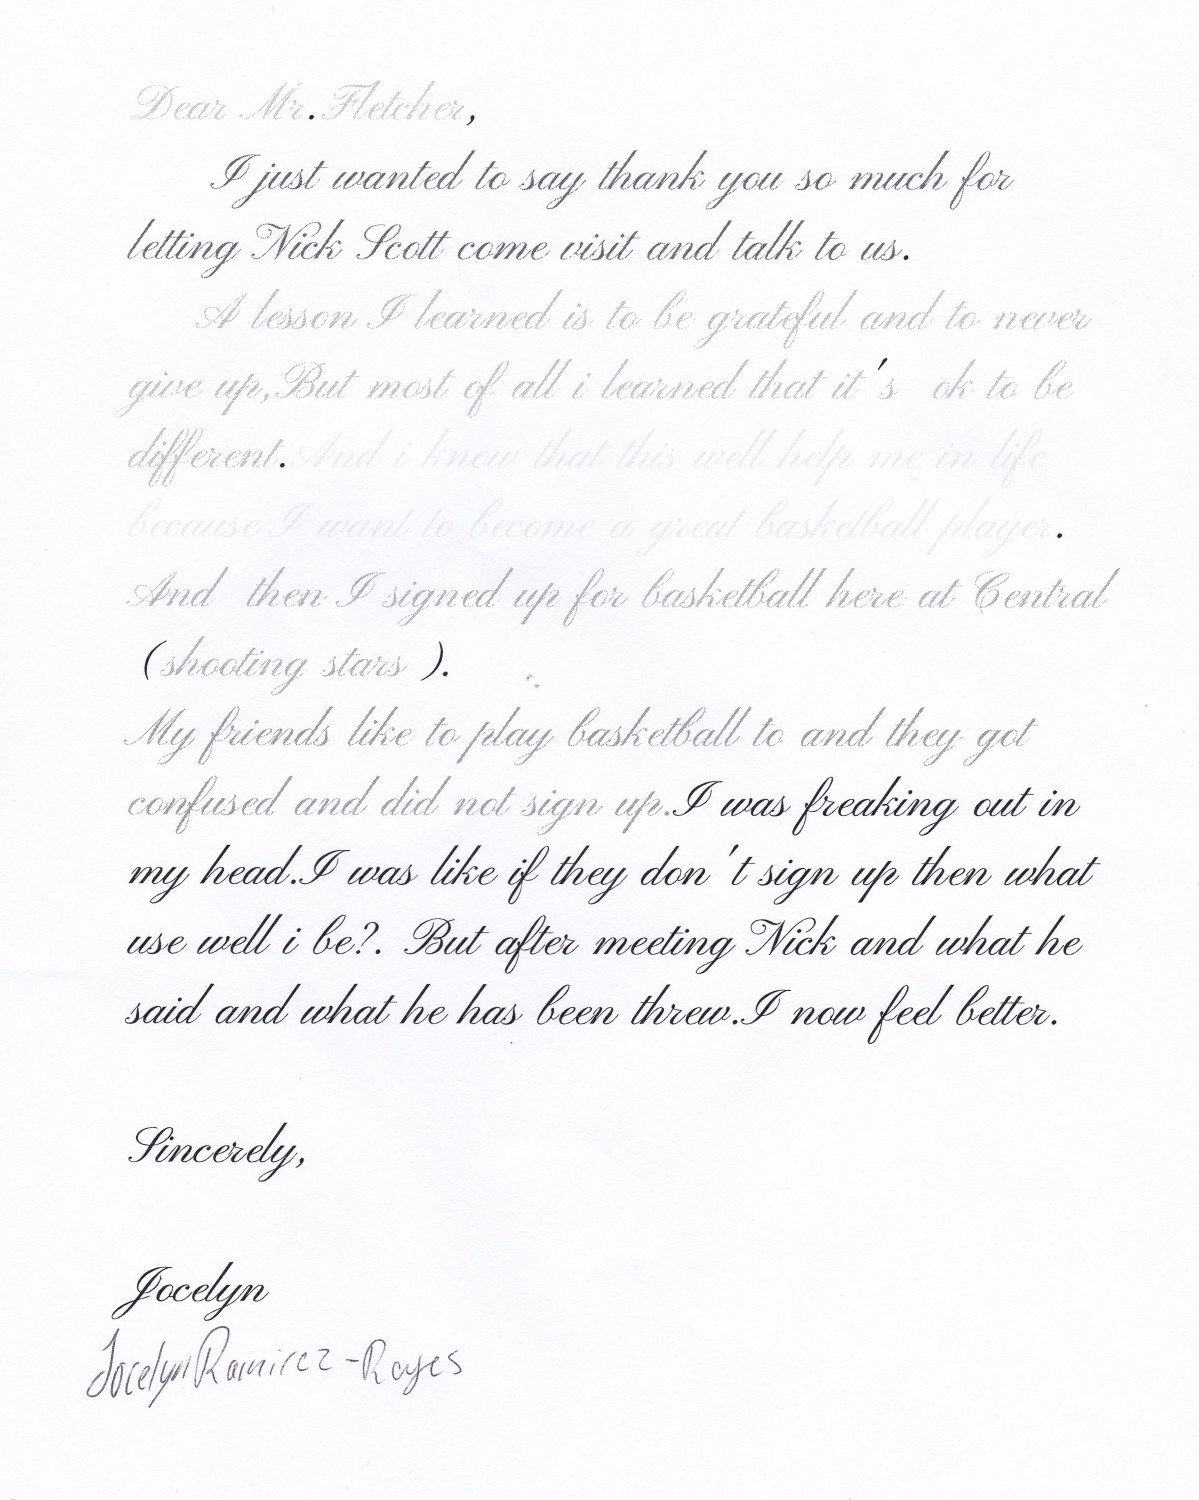 Dear Mr.Fletcher,
I just wanted to say thank you so much for
letting Nick Scott come visit and talk to us.
A lesson I learned is to be grateful and to never
give up,But most of all i learned that it's ok to be
different.And i know that this well help me in life
because I want to become a great basketball player.
And then I signed up for basketball here at Central
(shooting stars ).
My friends like to play basketball to and they got
confused and did not sign up.I was freaking out in
my head.I was like if they don't sign up then what
use well i be?. But after meeting Nick and what he
said and what he has been threw.I now feel better.
Sincerely,
Jocelyn
Jocelyn Ramirez-Reyes